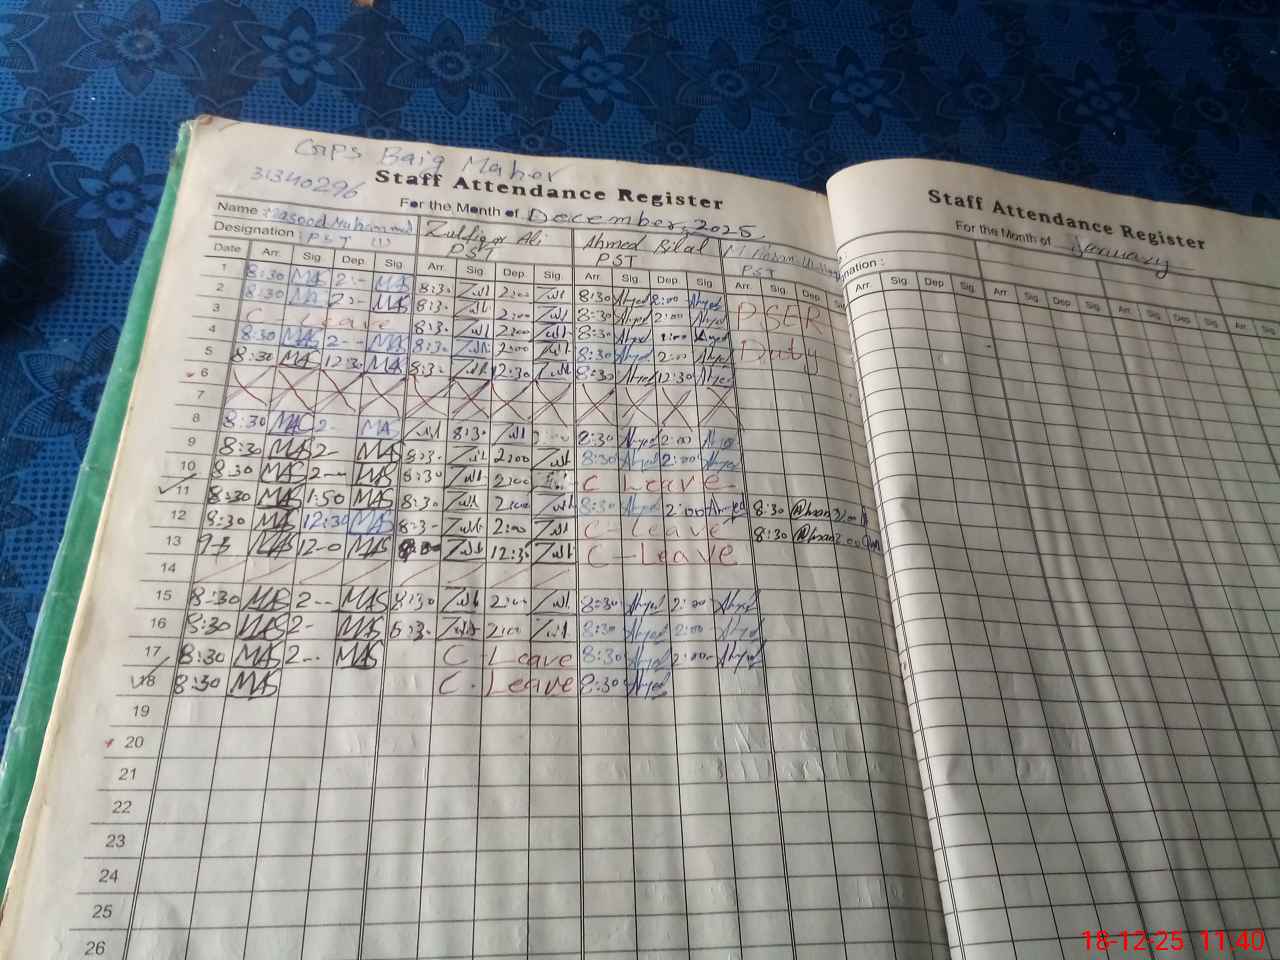 GPS Baig Maher
31340296
Staff Attendance Register
For the Month of December, 2025.
Name : Masood Muhammad Zulfiqar Ali Ahmed Bilal
Designation : PST PST PST PST
Date Arr. Sig. Dep. Sig. Arr. Sig. Dep. Sig. Arr. Sig. Dep. Sig. Arr. Sig. Dep.
1 8:30 MAS 2-- MAS 8:30 Zult 2:00 Zult 8:30 Ahmed 2:00 Ahmed PSER
2 8:30 MAS 2-- MAS 8:30 Zult 2:00 Zult 8:30 Ahmed 2:00 Ahmed
3 C Leave 8:30 Zult 2:00 Zult 8:30 Ahmed 2:00 Ahmed Duty
4 8:30 MAS 2-- MAS 8:30 Zult 2:00 Zult 8:30 Ahmed 2:00 Ahmed
5 8:30 MAS 12:30 MAS 8:30 Zult 12:30 Zult 8:30 Ahmed 12:30 Ahmed
6
7
8 8:30 MAS 2- MAS Zult 8:30 Zult 8:30 Ahmed 2:00 Ahmed
9 8:30 MAS 2- MAS 8:30 Zult 2:00 Zult 8:30 Ahmed 2:00 Ahmed
10 8:30 MAS 2-- MAS 8:30 Zult 2:00 C Leave
11 8:30 MAS 1:50 MAS 8:30 Zult 2:00 Zult 8:30 Ahmed 2:00 Ahmed 8:30
12 8:30 MAS 12:30 MAS 8:30 Zult 2:00 Zult C-Leave 8:30
13 MAS 12-0 MAS Zult 12:30 Zult C-Leave
14
15 8:30 MAS 2-- MAS 8:30 Zult 2:00 Zult 8:30 Ahmed 2:00 Ahmed
16 8:30 MAS 2- MAS 8:30 Zult 2:00 Zult 8:30 Ahmed 2:00 Ahmed
17 8:30 MAS 2-- MAS C-Leave 8:30 Ahmed 2:00 Ahmed
18 8:30 MAS C-Leave 8:30 Ahmed
19
20
21
22
23
24
25
26
Staff Attendance Register
For the Month of January
nation :
Sig. Dep. Sig. Arr. Sig. Dep. Sig. Arr. Sig. Dep. Sig. Arr. Sig.
18-12-25 11:40